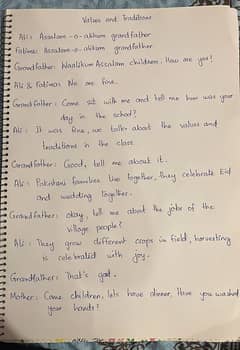 Values and Traditions
Ali: Assalam-o-alikum grandfather
Fatima: Assalam-o-alikum grandfather
Grandfather: Waalikum Assalam children, How are you?
Ali & Fatima: We are fine.
Grandfather: Come sit with me and tell me how was your
day in the school?
Ali: It was fine, we talk about the values and
traditions in the class
Grandfather: Good, tell me about it.
Ali: Pakistani families live together, they celebrate Eid
and wedding together.
Grandfather: okay, tell me about the jobs of the
village people?
Ali: They grow different crops in field, harvesting
is celebrated with joy.
Grandfather: That's good.
Mother: Come children, lets have dinner, Have you washed
your hands?